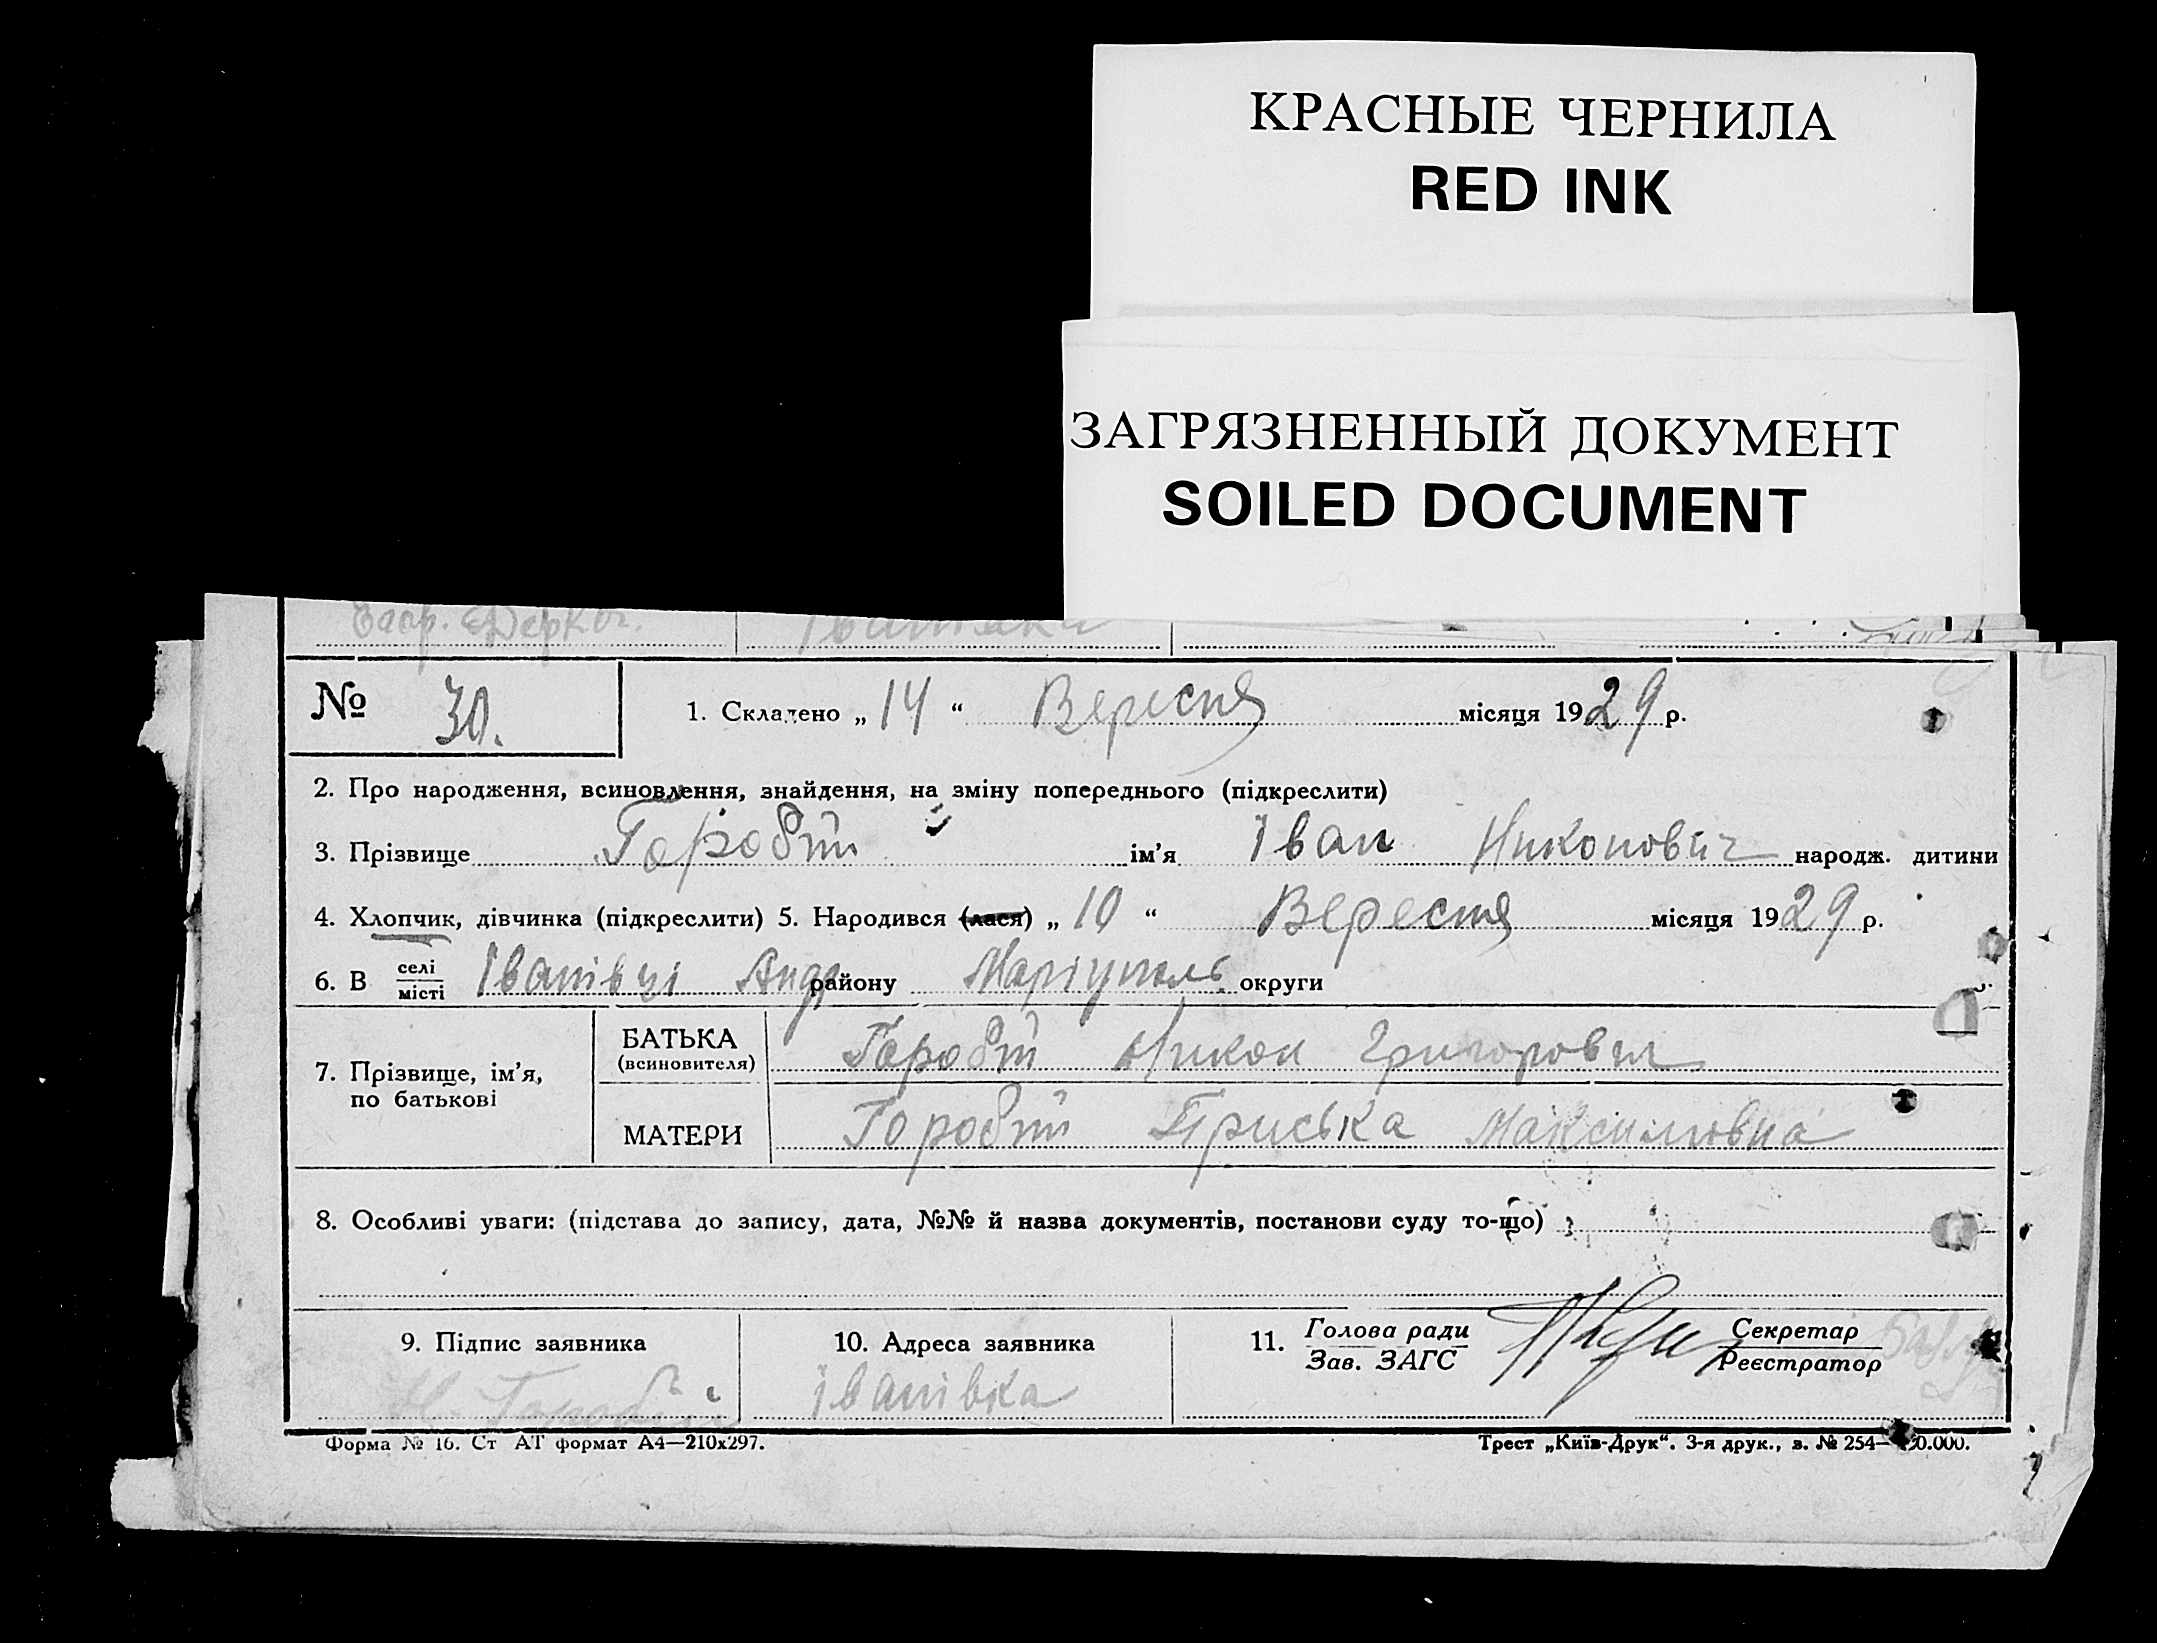 КРАСНЫЕ ЧЕРНИЛА
RED INK
ЗАГРЯЗНЕННЫЙ ДОКУМЕНТ
SOILED DOCUMENT
№ 30. 1. Складено „ 14 “ Вересня місяця 1929 р.
2. Про народження, всиновлення, знайдення, на зміну попереднього (підкреслити)
3. Прізвище Горобій ім’я Іван Никонович народж. дитини
4. Хлопчик, дівчинка (підкреслити) 5. Народився (лася) „ 10 “ Вересня місяця 1929 р.
6. В селі місті Іванівці Андр району Маріуполь округи
7. Прізвище, ім’я, по батькові
БАТЬКА (всиновителя) Горобій Никон Григорович
МАТЕРИ Горобій Пріська Максимовна
8. Особливі уваги: (підстава до запису, дата, №№ й назва документів, постанови суду то-що)
9. Підпис заявника 10. Адреса заявника 11. Голова ради Зав. ЗАГС Секретар Реєстратор
Н. Горобій Іванівка
Форма № 16. Ст АТ формат А4—210х297. Трест „Київ-Друк“. 3-я друк., з. № 254—